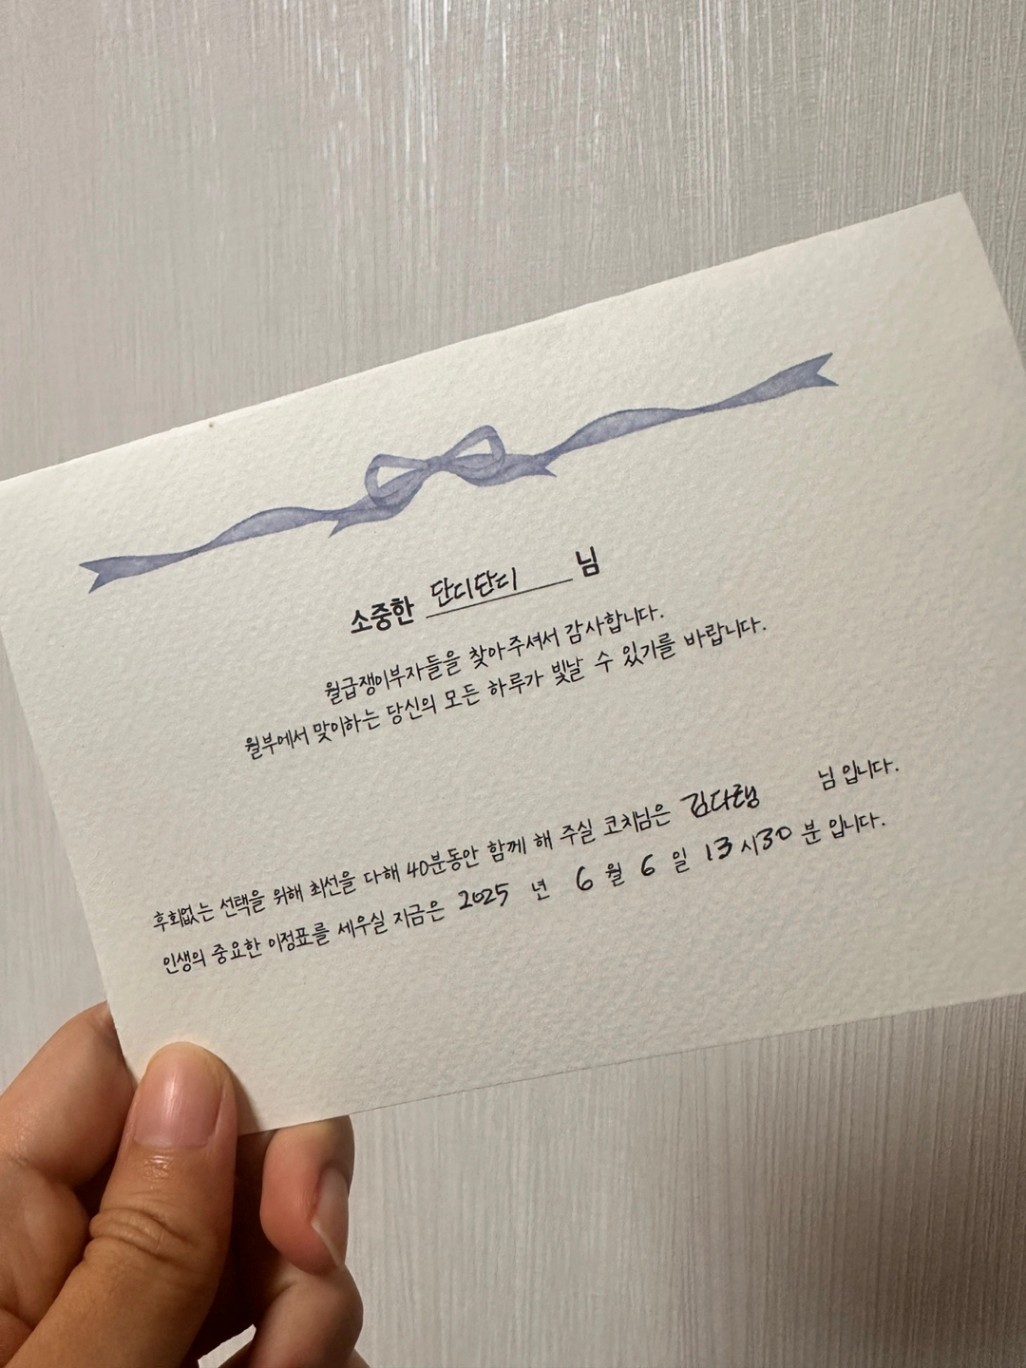 소중한 단디단디 님
월급쟁이부자들을 찾아주셔서 감사합니다.
월부에서 맞이하는 당신의 모든 하루가 빛날 수 있기를 바랍니다.
후회없는 선택을 위해 최선을 다해 40분동안 함께 해 주실 코치님은 김다랭 님 입니다.
인생의 중요한 이정표를 세우실 지금은 2025 년 6 월 6 일 13 시 30 분 입니다.